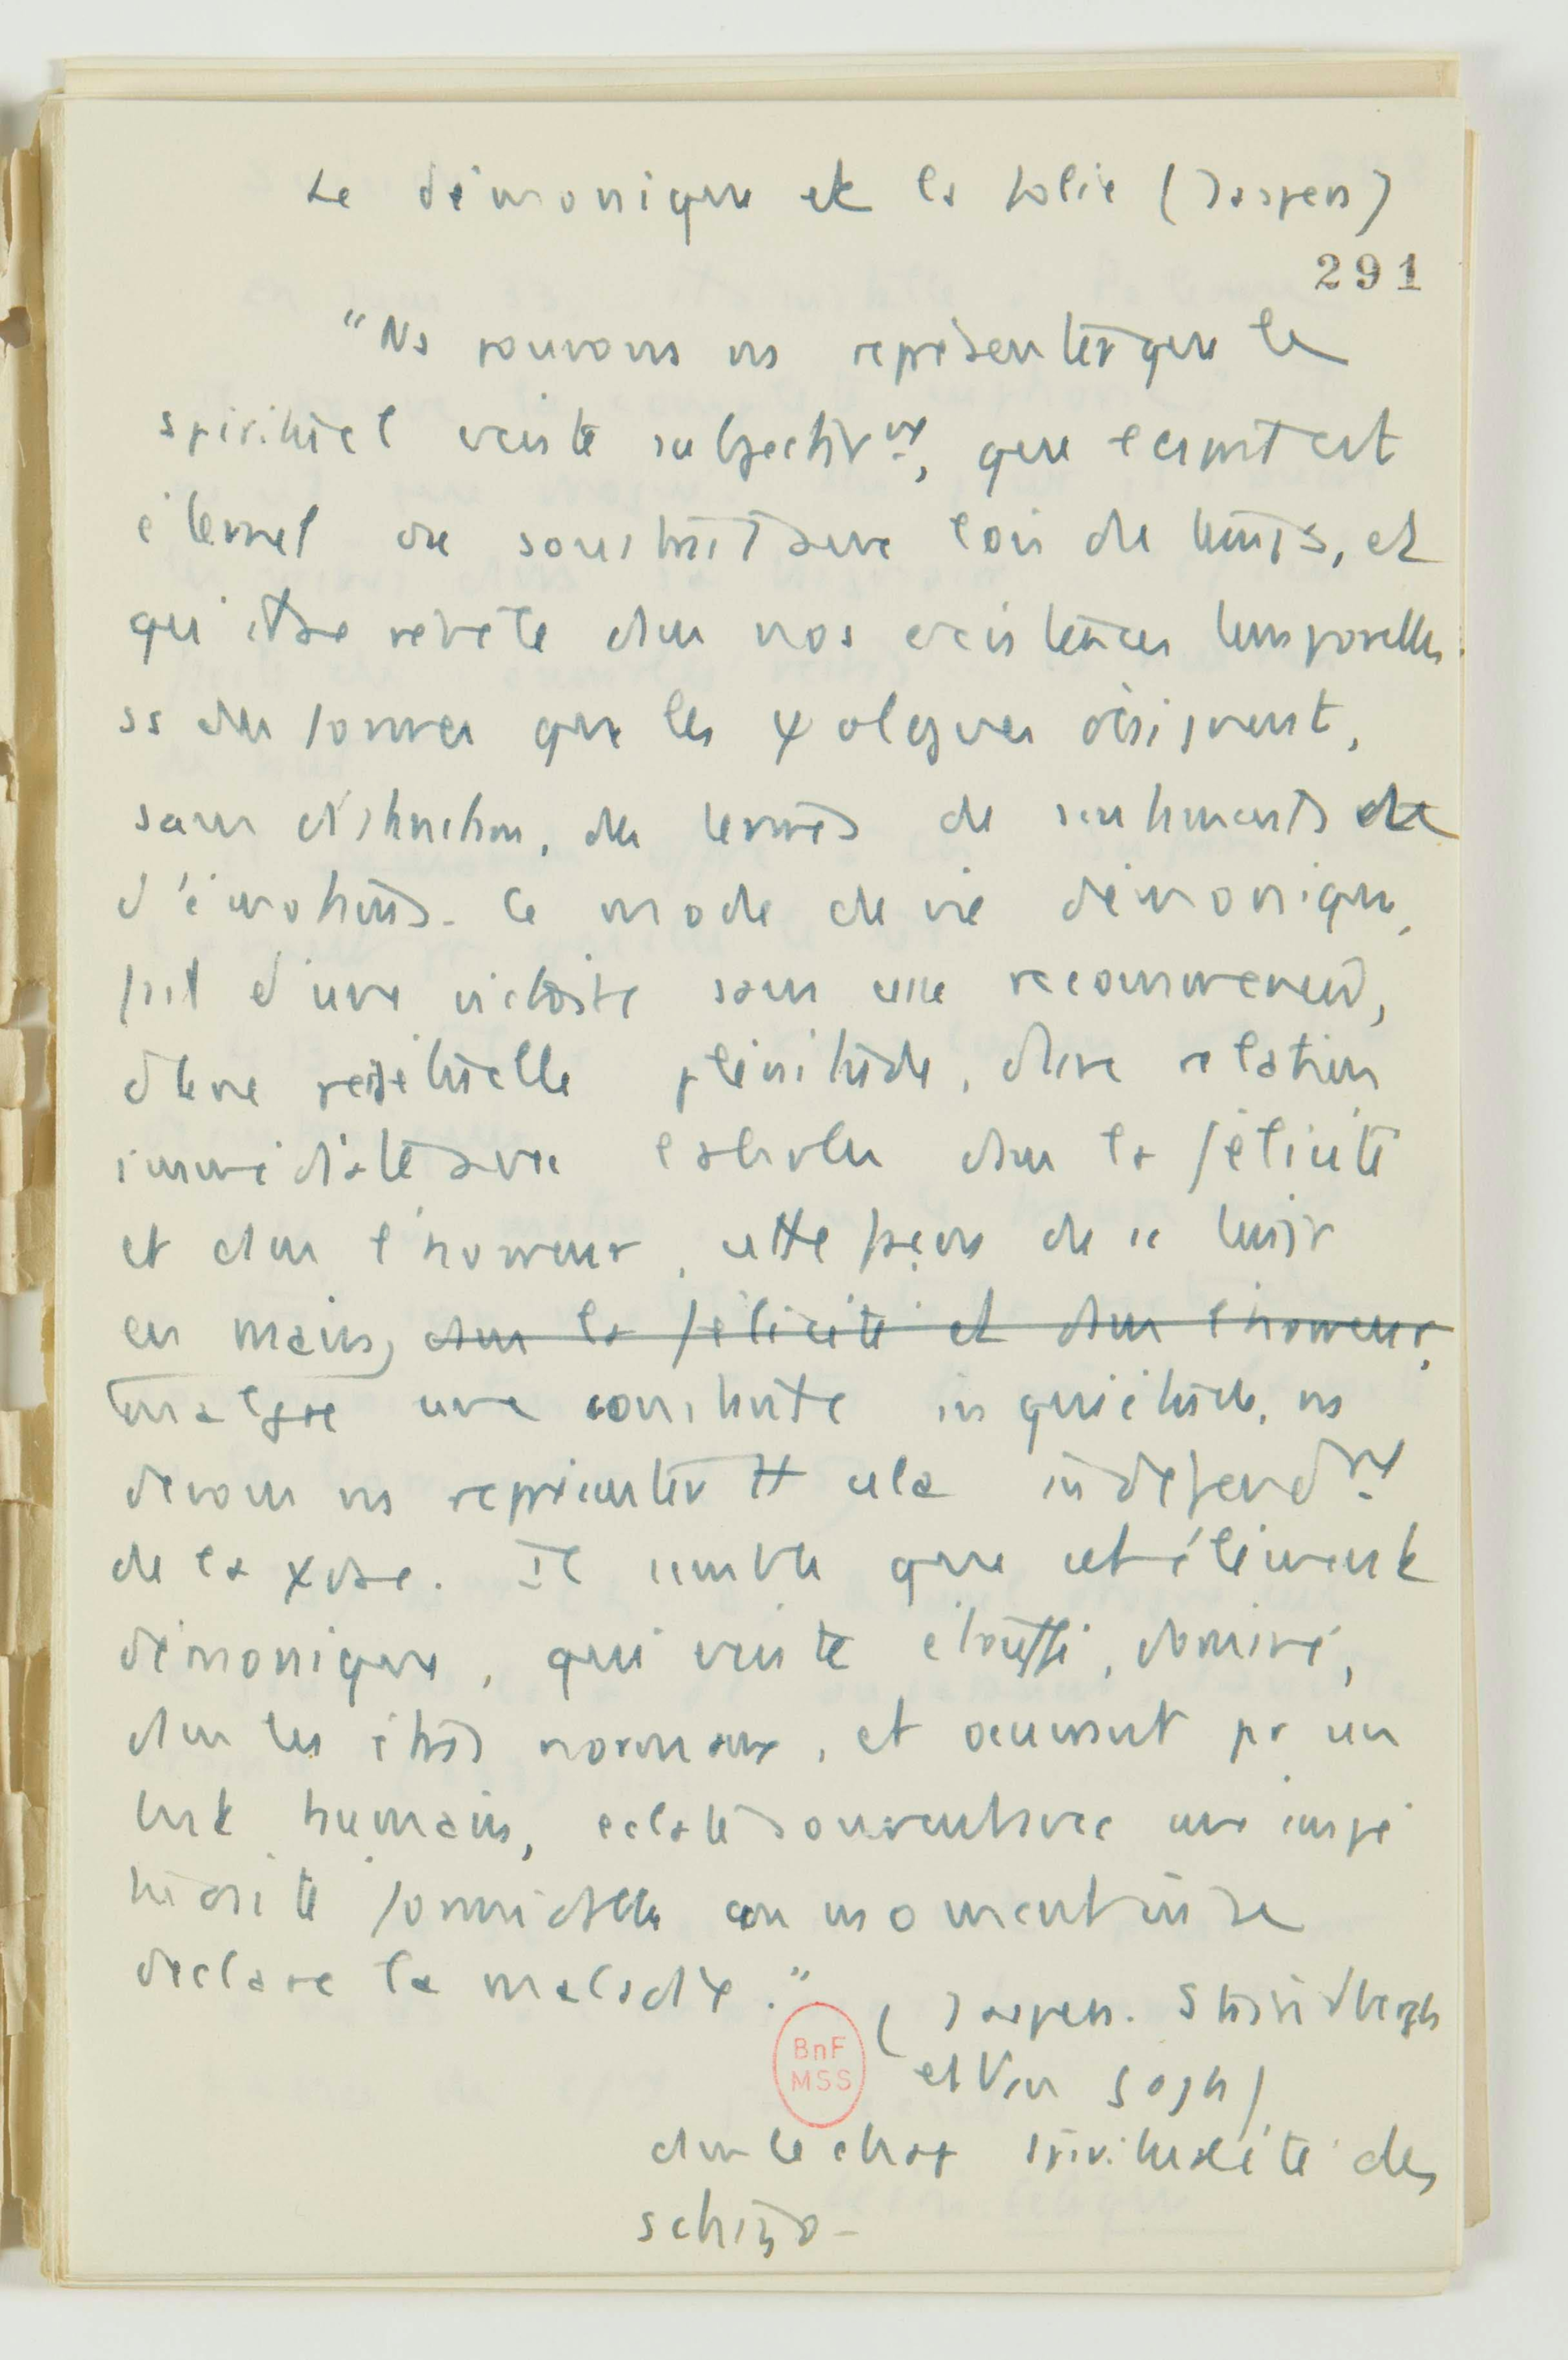 Le démonique et la folie (Jaspers)
291
"Ns pouvons ns représenter que le
spirituel existe subjectivt, que l'esprit est
éternel ou soustrait aux lois du temps, et
qu'il se révèle dans nos existences temporelles
ss des formes que les ψologues désignent,
sans distinction, des termes de sentiments et
d'émotions. Ce mode de vie démonique,
fait d'une victoire sans cesse recommencée,
d'une perpétuelle plénitude, d'une relation
immédiate avec l'absolu dans la félicité
et dans l'horreur, cette façon de se tenir
en mains, dans la félicité et dans l'horreur,
malgré une constante inquiétude, ns
devons ns représenter tt cela indépendt
de la ψose. Il semble que cet élément
démonique, qui existe étouffé, dominé,
dans les êtres normaux, et oeuvrant pr un
but humain, éclate souvent avec une impé
tuosité formidable au moment où se
déclare la maladie."
(Jaspers. Strindbergh
et Van Gogh)
dans le chap spiritualité des
schizo-
BnF
MSS